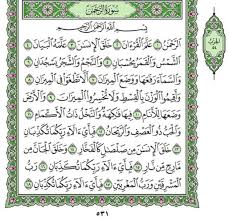 سُورَةُ الرَّحْمٰن
بِسْمِ اللَّهِ الرَّحْمَٰنِ الرَّحِيمِ
الرَّحْمَٰنُ ١ عَلَّمَ الْقُرْآنَ ٢ خَلَقَ الْإِنسَانَ ٣ عَلَّمَهُ الْبَيَانَ ٤
الشَّمْسُ وَالْقَمَرُ بِحُسْبَانٍ ٥ وَالنَّجْمُ وَالشَّجَرُ يَسْجُدَانِ ٦
وَالسَّمَاءَ رَفَعَهَا وَوَضَعَ الْمِيزَانَ ٧ أَلَّا تَطْغَوْا فِي الْمِيزَانِ ٨
وَأَقِيمُوا الْوَزْنَ بِالْقِسْطِ وَلَا تُخْسِرُوا الْمِيزَانَ ٩ وَالْأَرْضَ
وَضَعَهَا لِلْأَنَامِ ١٠ فِيهَا فَاكِهَةٌ وَالنَّخْلُ ذَاتُ الْأَكْمَامِ ١١
وَالْحَبُّ ذُو الْعَصْفِ وَالرَّيْحَانُ ١٢ فَبِأَيِّ آلَاءِ رَبِّكُمَا تُكَذِّبَانِ ١٣
خَلَقَ الْإِنسَانَ مِن صَلْصَالٍ كَالْفَخَّارِ ١٤ وَخَلَقَ الْجَانَّ مِن
مَّارِجٍ مِّن نَّارٍ ١٥ فَبِأَيِّ آلَاءِ رَبِّكُمَا تُكَذِّبَانِ ١٦ رَبُّ
الْمَشْرِقَيْنِ وَرَبُّ الْمَغْرِبَيْنِ ١٧ فَبِأَيِّ آلَاءِ رَبِّكُمَا تُكَذِّبَانِ ١٨
٥٣١